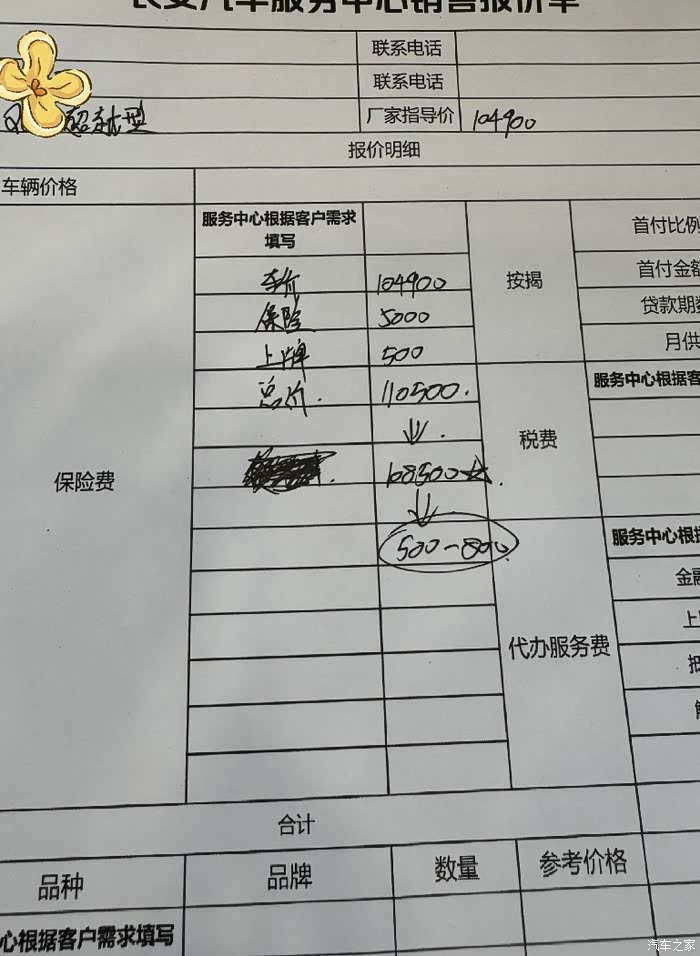 长安汽车服务中心销售报价单
联系电话
联系电话
超越型 厂家指导价 104900
报价明细
车辆价格
服务中心根据客户需求
填写
首付比例
车价 104900 按揭 首付金额
保险 5000 贷款期数
上牌 500 月供
总价. 110500. 服务中心根据客
税费
保险费 108500
500-800.
服务中心根据
金融
代办服务费 上
合计
品种 品牌 数量 参考价格
心根据客户需求填写
汽车之家